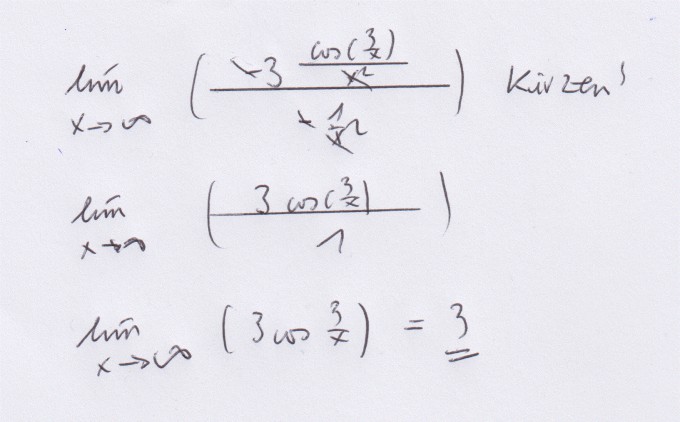 lim x→∞ ( -3 cos(3/x)/x² / -1/x² ) Kürzen!
lim x→∞ ( 3 cos(3/x) / 1 )
lim x→∞ ( 3 cos 3/x ) = 3